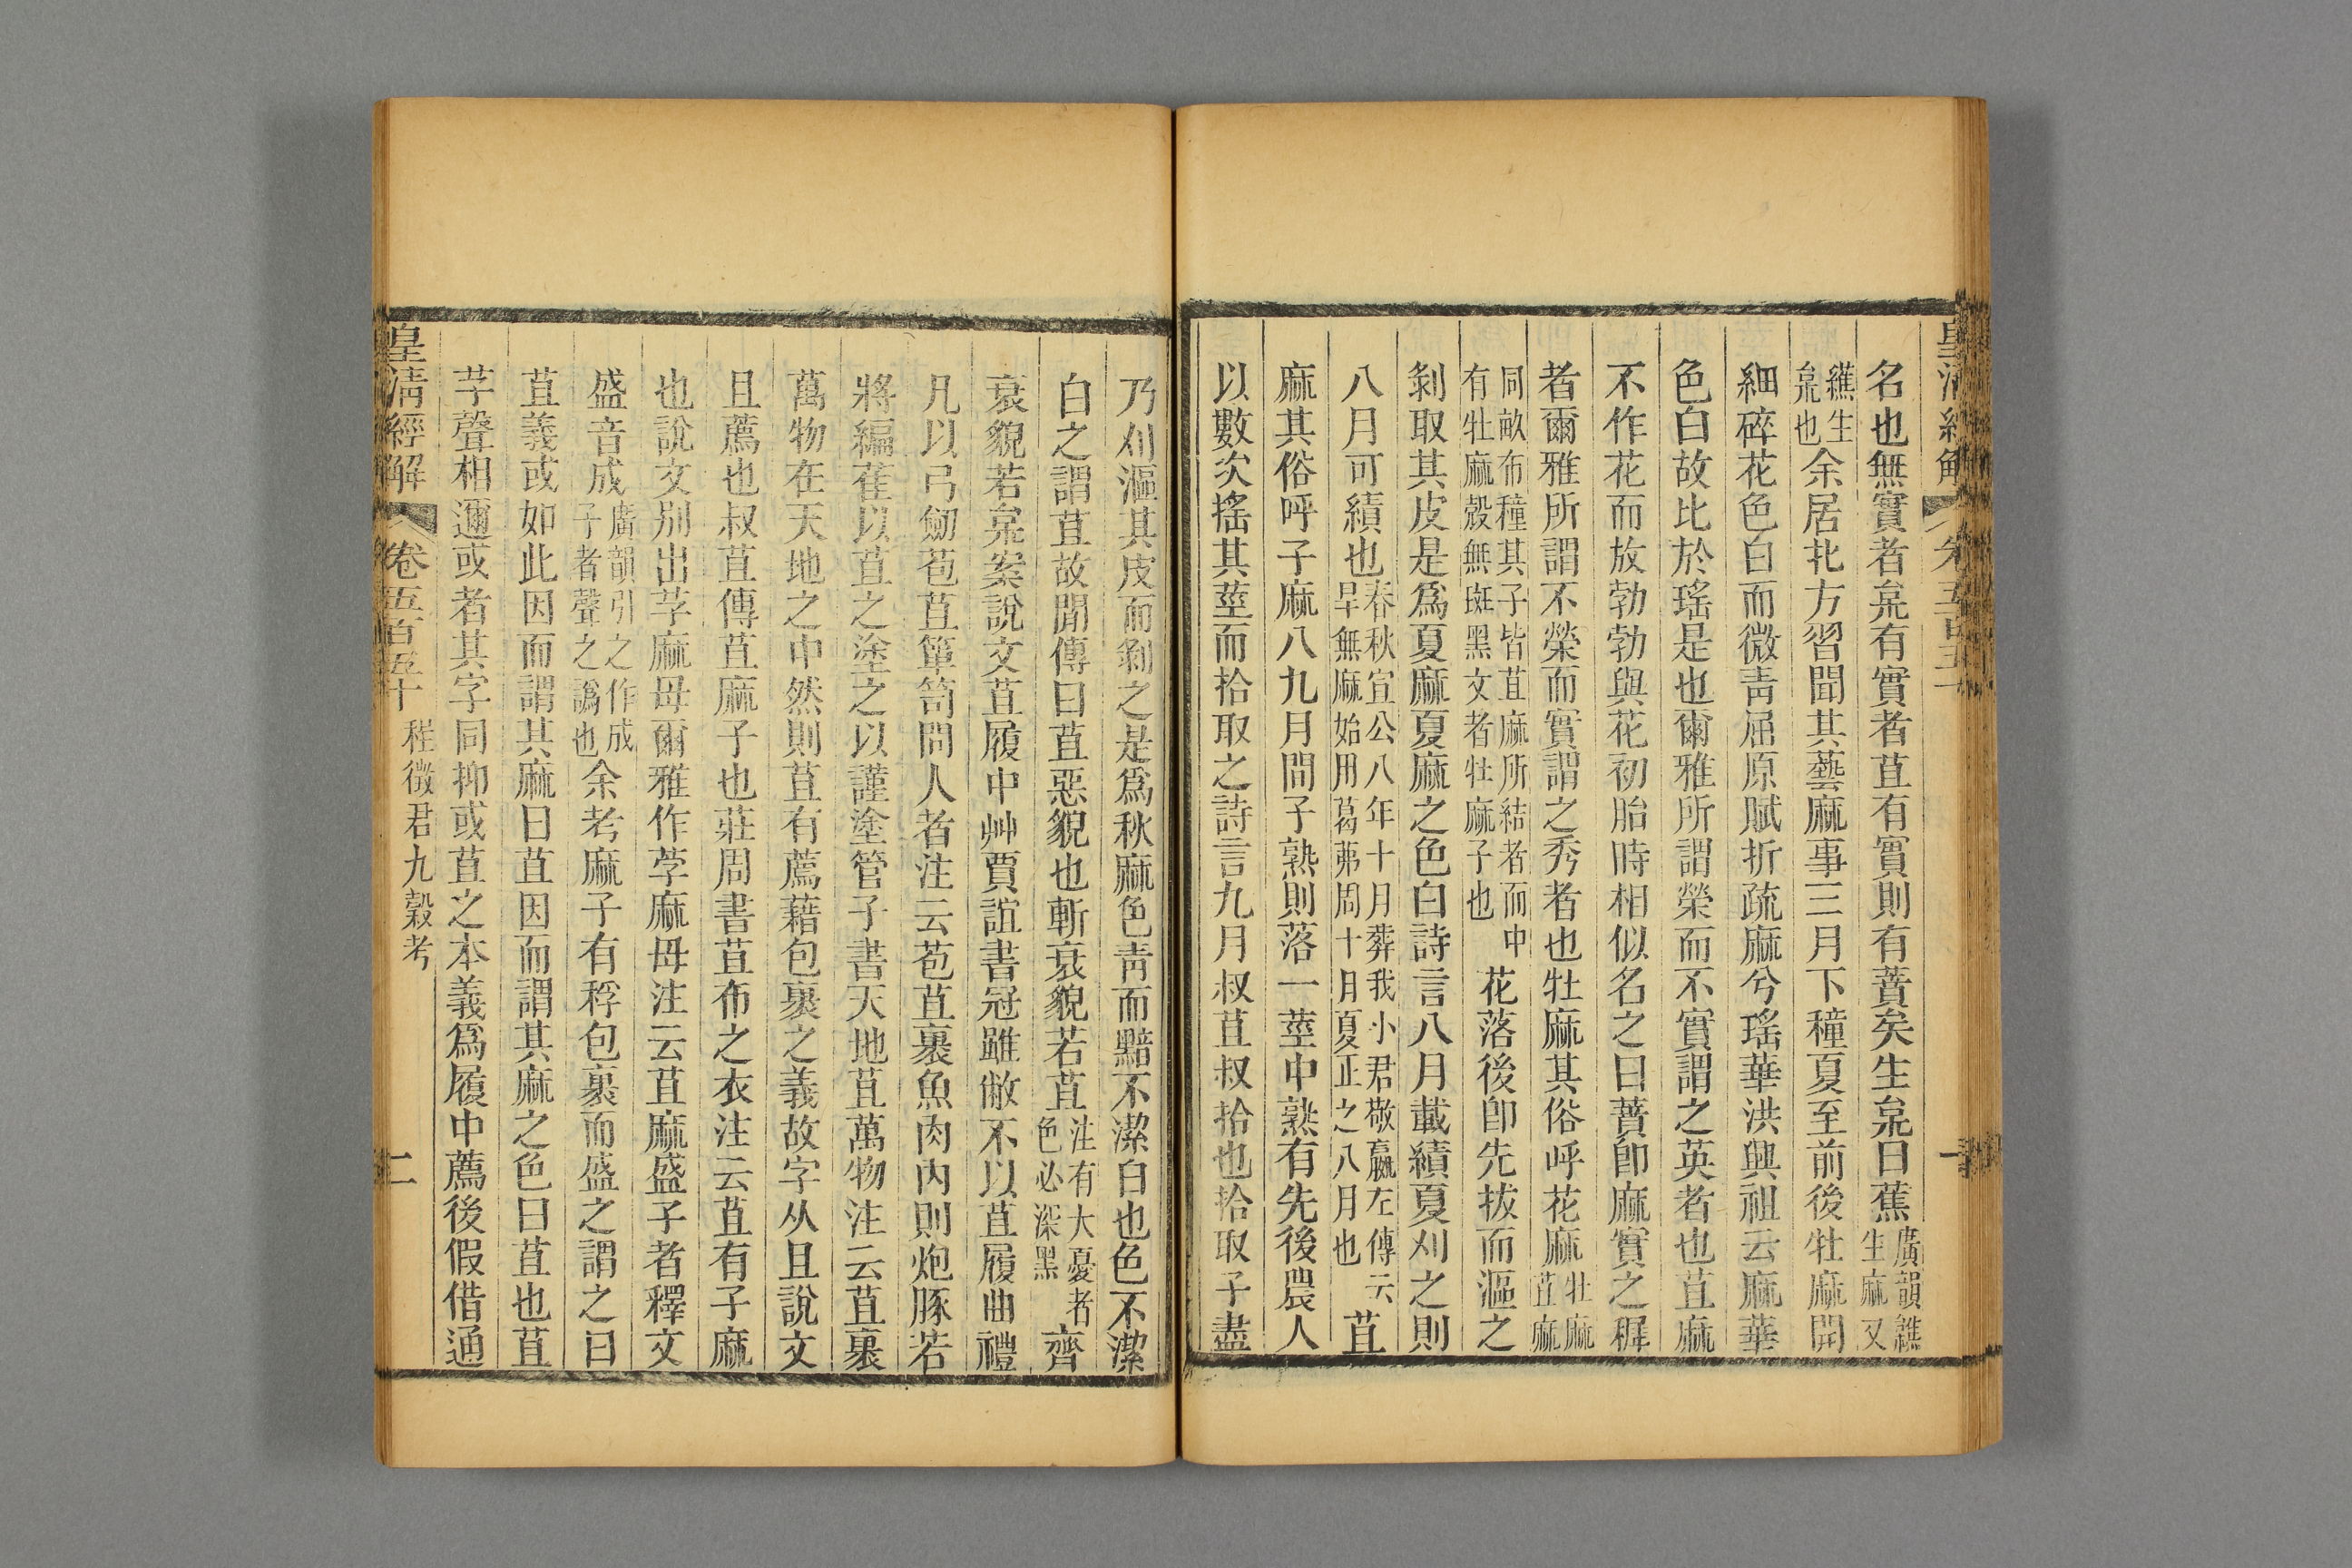 名也無實者枲有實者苴有實則有蕡矣生枲曰蕉廣韻䕴生麻又
䕴生枲也余居北方習聞其藝麻事三月下穜夏至前後牡麻開
細碎花色白而微靑屈原賦折疏麻兮瑤華洪興祖云麻華
色白故比於瑤是也爾雅所謂榮而不實謂之英者也苴麻
不作花而放勃勃與花初胎時相似名之曰蕡卽麻實之稺
者爾雅所謂不榮而實謂之秀者也牡麻其俗呼花麻牡麻苴麻
同畝布穜其子皆苴麻所結者而中有牡麻殼無斑黑文者牡麻子也花落後卽先拔而漚之
剝取其皮是爲夏麻夏麻之色白詩言八月載績夏刈之則
八月可績也春秋宣公八年十月葬我小君敬嬴左傳云旱無麻始用葛茀周十月夏正之八月也苴
麻其俗呼子麻八九月間子熟則落一莖中熟有先後農人
以數次搖其莖而拾取之詩言九月叔苴叔拾也拾取子盡
乃刈漚其皮而剝之是爲秋麻色靑而黯不潔白也色不潔
白之謂苴故閒傳曰苴惡貌也斬衰貌若苴注有大憂者色必深黑齊
衰貌若枲案說文苴履中艸賈誼書冠雖敝不以苴履曲禮
凡以弓劒苞苴簞笥問人者注云苞苴裹魚肉內則炮豚若
將編萑以苴之塗之以謹塗管子書天地苴萬物注云苴裹
萬物在天地之中然則苴有薦藉包裹之義故字从且說文
且薦也叔苴傳苴麻子也莊周書苴布之衣注云苴有子麻
也說文別出芓麻母爾雅作茡麻母注云苴麻盛子者釋文
盛音成廣韻引之作成子者聲之譌也余考麻子有稃包裹而盛之謂之曰
苴義或如此因而謂其麻曰苴因而謂其麻之色曰苴也苴
芓聲相邇或者其字同抑或苴之本義爲履中薦後假借通
皇淸經解 卷五百五十 程徵君九穀考 二